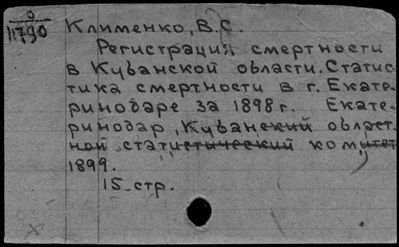 0
11790
Клименко, В.С.
Регистрация смертности
в Кубанской области. Статис-
тика смертности в г. Екате-
ринодаре за 1898 г. Екате-
ринодар, Кубанский област-
ной статистический комитет
1899.
15 стр.